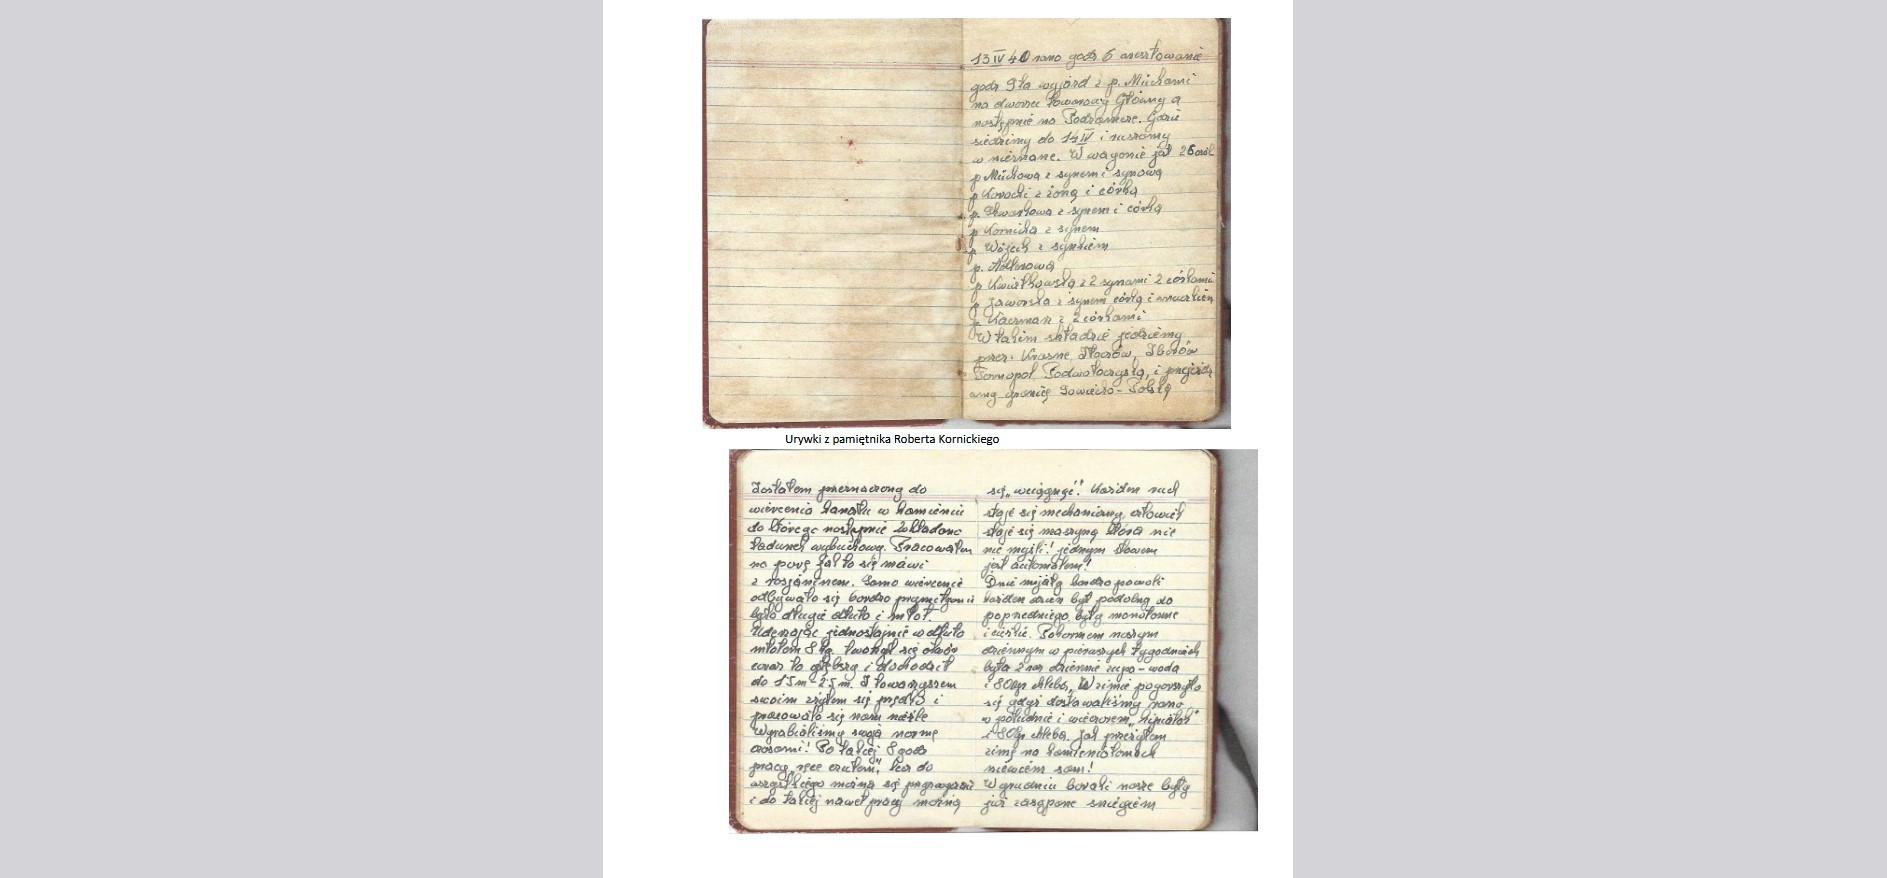 13 IV 40 rano godz 6 aresztowanie
godz 9ta wyjazd z p. Müchami
na dworzec towarowy Główny a
następnie na Podzamcze. Gdzie
siedzimy do 14 IV i ruszamy
w nieznane. W wagonie jest 26 osób
p Müchowa z synem i synową
p z żoną i córką
p. z synem i córką
p Kornicka z synem
p Wójcik z synkiem
p.
p Kwiatkowska z 2 synami 2 córkami
p Jaworska z synem córką i
p Kaczmar z 2 córkami
W takim składzie jedziemy
przez. Krasne, Złoczów, Zborów
Tarnopol Podwołoczyska, i przejeżdż
amy granicę Sowiecko-Polską
Urywki z pamiętnika Roberta Kornickiego
Zostałem przeznaczony do
wiercenia kanału w kamieniu
do którego następnie zakładano
ładunek wybuchowy. Pracowałem
na parę jak to się mówi
z rosjaninem. Samo wiercenie
odbywało się bardzo prymetywnie
było długie dłuto i młot.
Uderzając jednostajnie w dłuto
młotem 8 kg tworzył się otwór
coraz to głębszy i dochodził
do 1.5m-2.5m. Z towarzyszem
swoim zżyłem się prędko i
pracowało się nam nieźle
Wyrabialiśmy swoją normę
czasami! Po takiej 8 godz
pracy, ręce czułem, lecz do
wszystkiego można się przyzwyczaić
i do takiej nawet pracy można
się "wciągnąć"! Każden ruch
staje się mechaniczny, człowiek
staje się maszyną która nie
nie myśli! jednym słowem
jest automatem!
Dnie mijały bardzo powoli
każden dzień był podobny do
poprzedniego, były monotonne
i ciężkie. Pokarmem naszym
dziennym w pierwszych tygodniach
była 2 raz dziennie zupa-woda
i 800gr chleba, W zimie pogorszyło
się gdyż dostawaliśmy rano
w południe i wieczorem "kipiatok"
i 800gr chleba. Jak przeżyłem
zimę na kamieniołomach
niewiem sam!
W grudniu baraki nasze były
już zasypane śniegiem